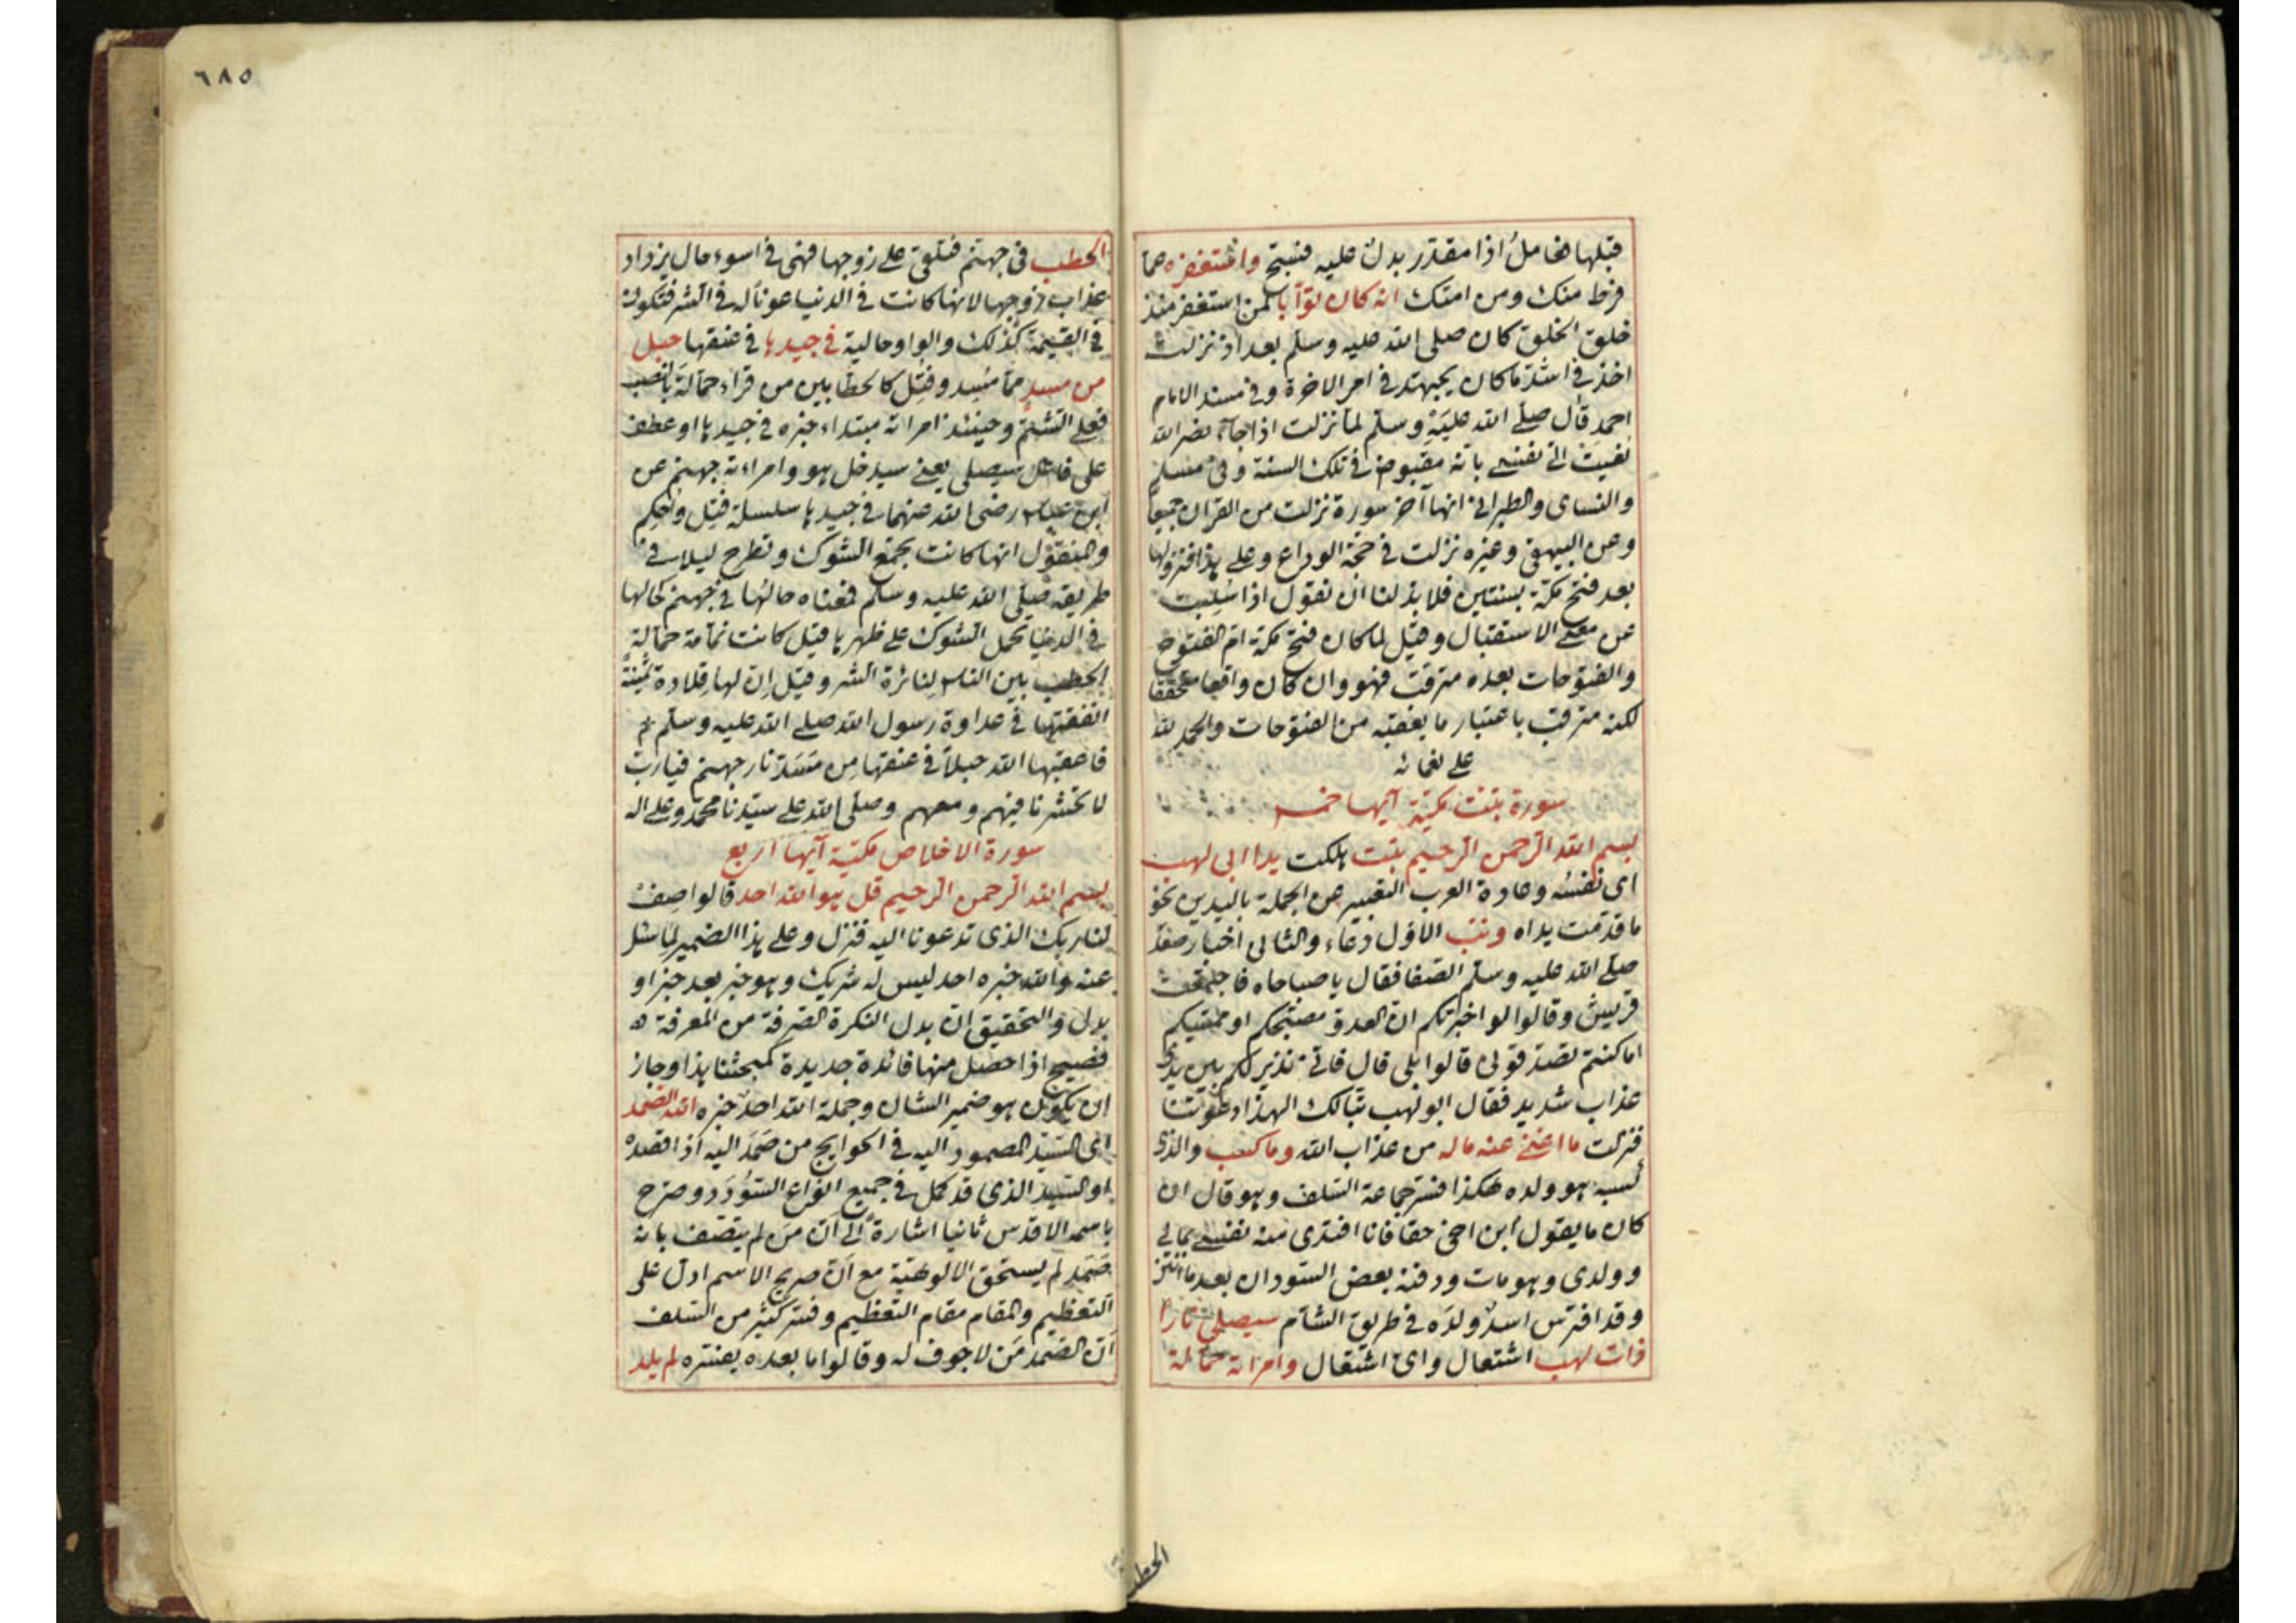 قبلها فالعامل اذا مقدر بدل عليه فسبح واستغفره عما
فرط منك ومن امتك انه كان توابا لمن استغفر منذ
خلق الخلق كان صلى الله عليه وسلم بعد اذ نزلت
اخذ في اشد ما كان يجتهد في امر الاخرة وفي مسند الامام
احمد قال صلى الله عليه وسلم لما نزلت اذا جاء نصر الله
نعيت الى نفسي بانه مقبوض في تلك السنة وفي مسلم
والنساى والطبراني انها آخر سورة نزلت من القرآن جميعا
وعن البيهقي وغيره نزلت في حجة الوداع وعلى هذا فنزولها
بعد فتح مكة بسنتين فلا بد لنا ان نقول اذا سلبت
عن معنى الاستقبال وقيل لما كان فتح مكة ام الفتوح
والفتوحات بعده مترقب فهو وان كان واقعا محققا
لكنه مترقب باعتبار ما يعقبه من الفتوحات والحمد لله
على نعمائه
سورة تبت مكية آيها خمس
بسم الله الرحمن الرحيم تبت هلكت يدا ابى لهب
اى نفسه وعادة العرب التعبير عن الجملة باليدين نحو
ما قدمت يداه وتب الاول دعاء والثانى اخبار صعد
صلى الله عليه وسلم الصفا فقال يا صباحاه فاجتمعت
قريش وقالوا لو اخبرتكم ان العدو مصبحكم او ممسيكم
اما كنتم تصدقونى قالوا بلى قال فانى نذير لكم بين يدى
عذاب شديد فقال ابو لهب تبا لك الهذا دعوتنا
فنزلت ما اغنى عنه ماله من عذاب الله وما كسب والذى
كسبه هو ولده هكذا فسر جماعة السلف وهو قال ان
كان ما يقول ابن اخى حقا فانا افتدى منه نفسى بمالى
وولدى وهو مات ودفنه بعض السودان بعد ما انتن
وقد افترس اسد ولده في طريق الشام سيصلى نارا
ذات لهب اشتعال واى اشتعال وامراته حمالة
الحط
٦٨٥
الحطب فى جهنم فتلقى على زوجها فهى فى اسوء حال يزداد
عذاب زوجها لانها كانت فى الدنيا عونا له فى الشر فتكون
فى القيمة كذلك والواو حالية فى جيدها فى عنقها حبل
من مسد مما مسد وفتل كالحطابين من قراء حمالة بالنصب
فعلى الشتم وحينئذ امراته مبتداء خبره فى جيدها او عطف
على فاعل سيصلى يعنى سيدخل هو وامراءته جهنم عن
ابن عباس رضى الله عنهما فى جيدها سلسلة فتل واحكم
والمنقول انها كانت تجمع الشوك وتطرح ليلا فى
طريقه صلى الله عليه وسلم فمعناه حالها فى جهنم كحالها
فى الدنيا تحمل الشوك على ظهرها قيل كانت نمامة حمالة
الحطب بين الناس لنائرة الشر وقيل ان لها قلادة ثمينة
انفقتها فى عداوة رسول الله صلى الله عليه وسلم
فاعقبها الله حبلا فى عنقها من مسد نار جهنم فيا رب
لا تحشرنا فيهم ومعهم وصلى الله على سيدنا محمد وعلى اله
سورة الاخلاص مكية آيها اربع
بسم الله الرحمن الرحيم قل هو الله احد قالوا صف
لنا ربك الذى تدعونا اليه فنزل وعلى هذا الضمير لما سئل
عنه والله خبره احد ليس له شريك وهو خبر بعد خبر او
بدل والتحقيق ان بدل النكرة الصرفة من المعرفة
فصيح اذا حصل منها فائدة جديدة كمبحثنا هذا وجاز
ان يكون هو ضمير الشان وجملة الله احد خبره الله الصمد
اى السيد المصمود اليه فى الحوايج من صمد اليه اذا قصده
او السيد الذى قد كمل فى جميع انواع السؤدد وصرح
باسمه الاقدس ثانيا اشارة الى ان من لم يتصف بانه
صمد لم يستحق الالوهية مع ان صريح الاسم ادل على
التعظيم والمقام مقام التعظيم وفسر كثير من السلف
ان الصمد من لا جوف له وقالوا ما بعده يفسره لم يلد